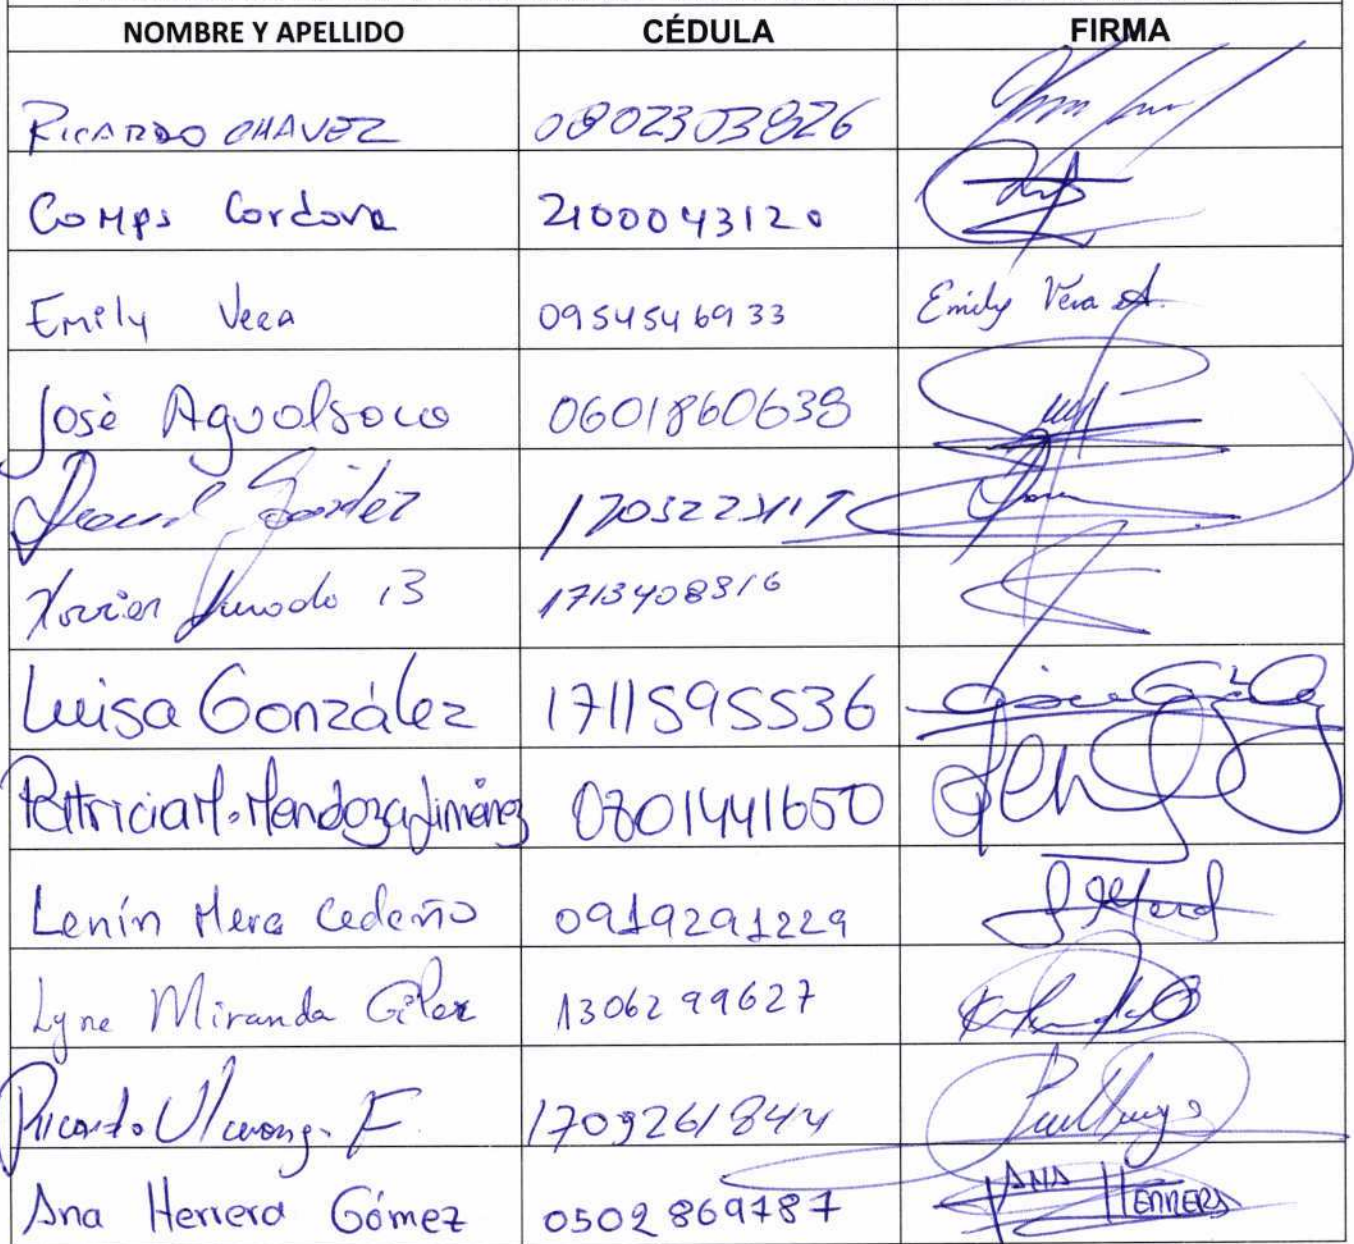 NOMBRE Y APELLIDO CÉDULA FIRMA
RICARDO CHAVEZ 0802303826
Comps Cordova 2100043120
Emily Vera 0954546933 Emily Vera A.
José Agualsaca 0601860638
1705223117
Xavier Jurado B 1713408316
Luisa González 1711595536
Patricia M. Mendoza Jiménez 0801441650
Lenín Mera Cedeño 0919291229
Lyne Miranda Giler 1306299627
Ricardo Ulcuango F. 1709261844
Ana Herrera Gómez 0502869787 ANA HERRERA